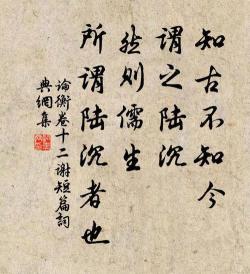 知古不知今
谓之陆沉
然则儒生
所谓陆沉者也
论衡卷十二谢短篇词
典网集